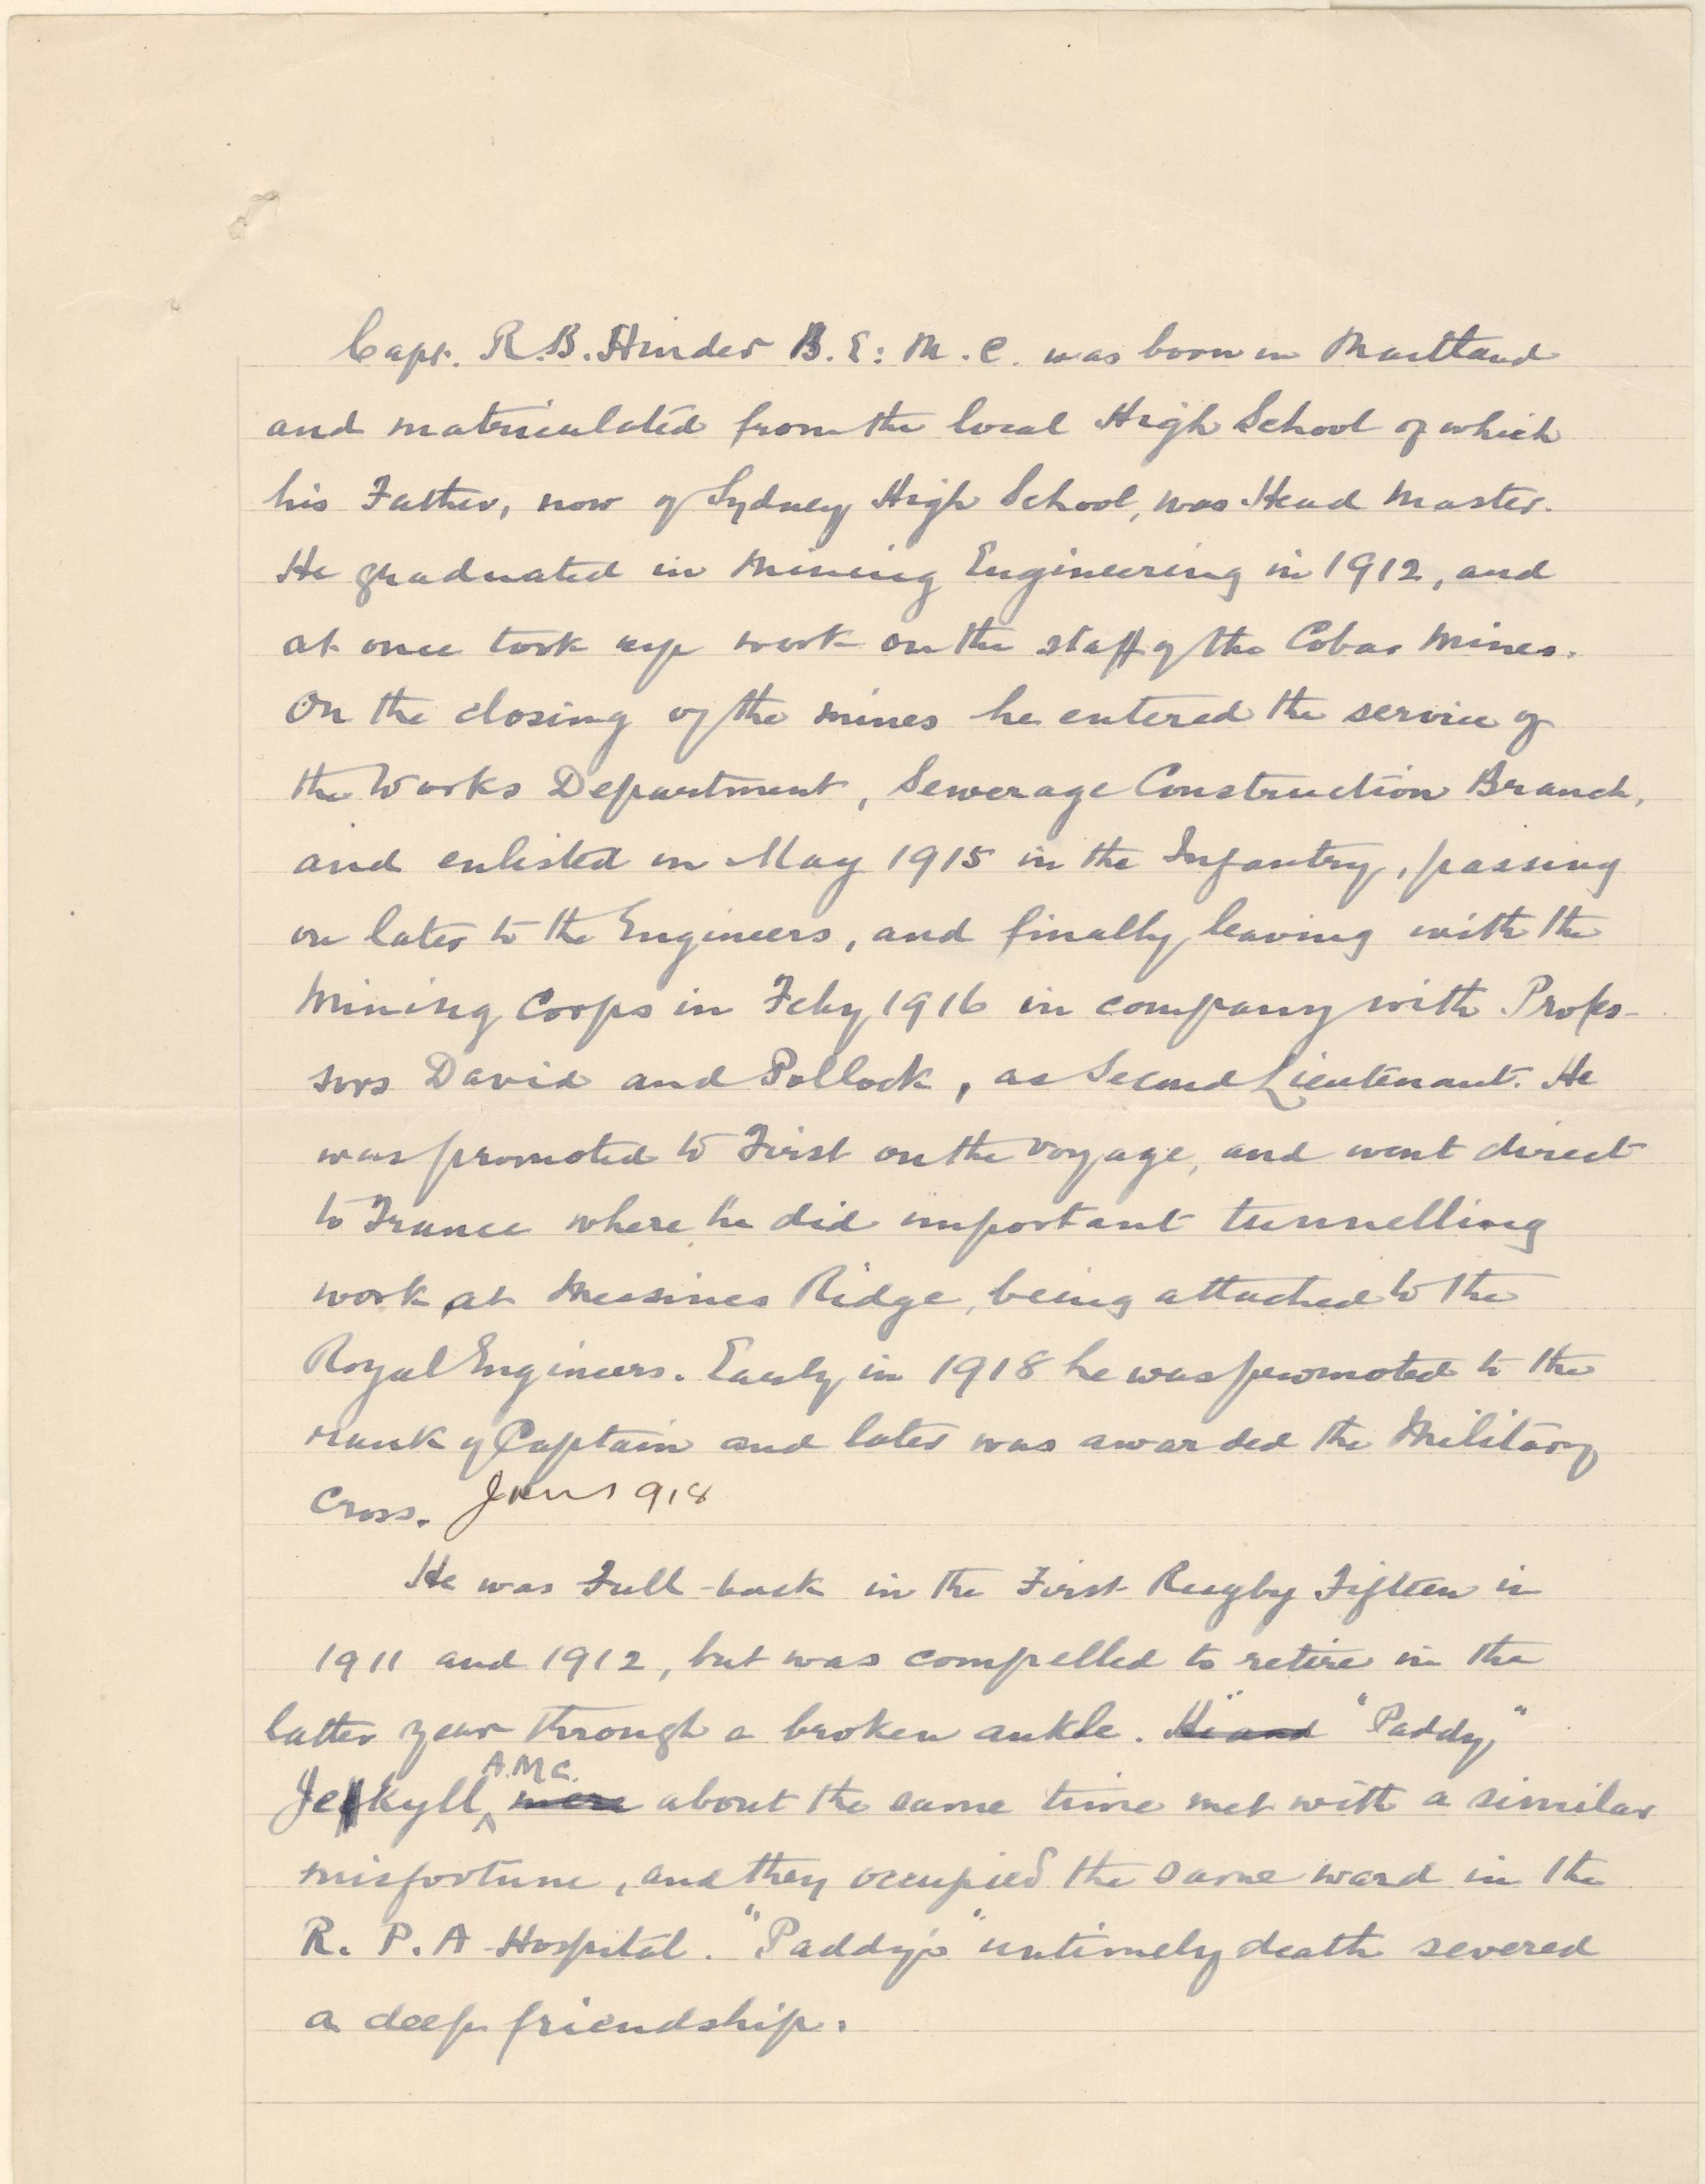 Capt. R.B. Hinder B.E: M.C. was born in Maitland
and matriculated from the local High School of which
his Father, now of Sydney High School, was Head Master.
He graduated in Mining Engineering in 1912, and
at once took up work on the staff of the Cobar Mines.
On the closing of the mines he entered the service of
the Works Department, Sewerage Construction Branch,
and enlisted in May 1915 in the Infantry, passing
on later to the Engineers, and finally leaving with the
Mining Corps in Feby 1916 in company with Profes-
sors David and Pollock, as Second Lieutenant. He
was promoted to First on the voyage, and went direct
to France where he did important tunnelling
work at Messines Ridge, being attached to the
Royal Engineers. Early in 1918 he was promoted to the
rank of Captain and later was awarded the Military
Cross. June 1918
He was Full-back in the First Rugby Fifteen in
1911 and 1912, but was compelled to retire in the
latter year through a broken ankle. He and "Paddy"
A.M.C.
Jekyll were about the same time met with a similar
misfortune, and they occupied the same ward in the
R. P. A Hospital. "Paddy's" untimely death severed
a deep friendship.